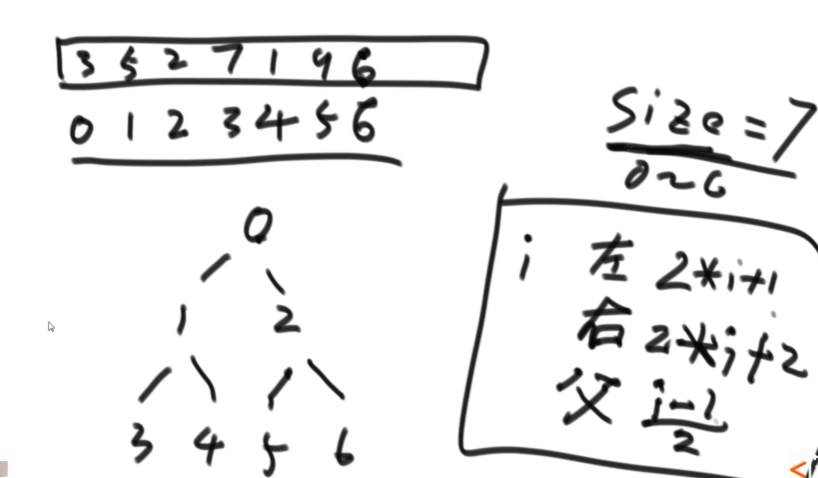 3 5 2 7 1 9 6
0 1 2 3 4 5 6
Size = 7
0~6
0
1 2
3 4 5 6
i 左 2*i+1
右 2*i+2
父 i-1/2